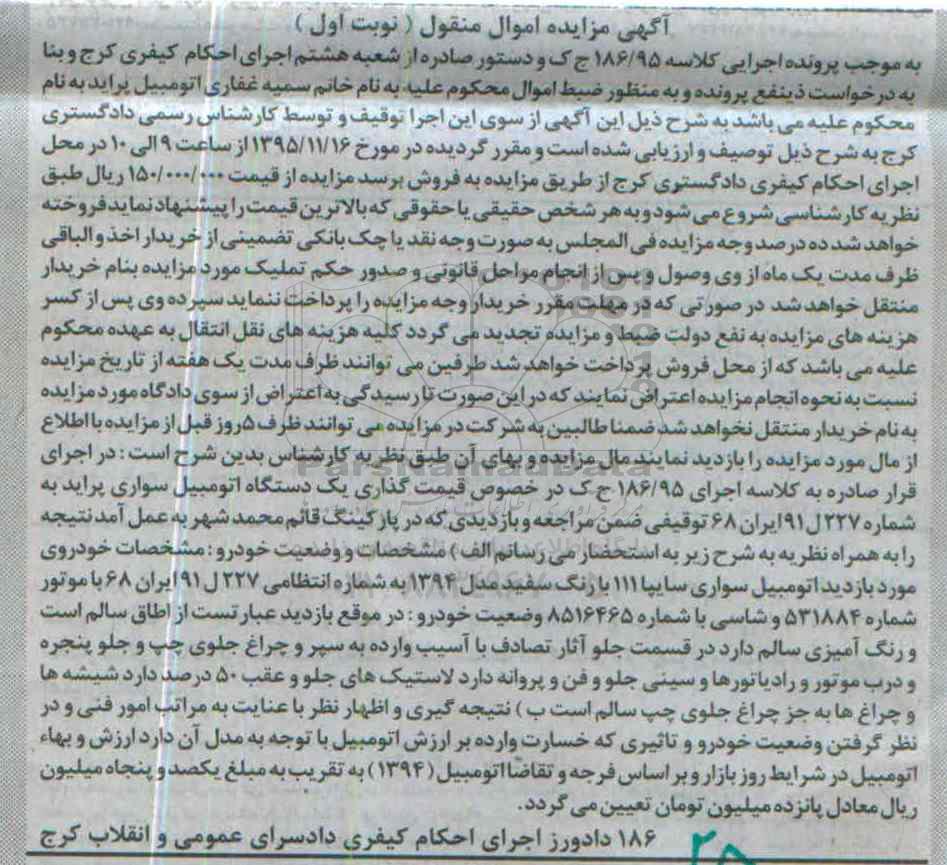 آگهی مزایده اموال منقول ( نوبت اول )
به موجب پرونده اجرایی کلاسه ۱۸۶/۹۵ ج ک و دستور صادره از شعبه هشتم اجرای احکام کیفری کرج و بنا
به درخواست ذینفع پرونده و به منظور ضبط اموال محکوم علیه به نام خانم سمیه غفاری اتومبیل پراید به نام
محکوم علیه می باشد به شرح ذیل این آگهی از سوی این اجرا توقیف و توسط کارشناس رسمی دادگستری
کرج به شرح ذیل توصیف و ارزیابی شده است و مقرر گردیده در مورخ ۱۳۹۵/۱۱/۱۶ از ساعت ۹ الی ۱۰ در محل
اجرای احکام کیفری دادگستری کرج از طریق مزایده به فروش برسد مزایده از قیمت ۱۵۰/۰۰۰/۰۰۰ ریال طبق
نظریه کارشناسی شروع می شود و به هر شخص حقیقی یا حقوقی که بالاترین قیمت را پیشنهاد نماید فروخته
خواهد شد ده درصد وجه مزایده فی المجلس به صورت وجه نقد یا چک بانکی تضمینی از خریدار اخذ و الباقی
ظرف مدت یک ماه از وی وصول و پس از انجام مراحل قانونی و صدور حکم تملیک مورد مزایده بنام خریدار
منتقل خواهد شد در صورتی که در مهلت مقرر خریدار وجه مزایده را پرداخت ننماید سپرده وی پس از کسر
هزینه های مزایده به نفع دولت ضبط و مزایده تجدید می گردد کلیه هزینه های نقل انتقال به عهده محکوم
علیه می باشد که از محل فروش پرداخت خواهد شد طرفین می توانند ظرف مدت یک هفته از تاریخ مزایده
نسبت به نحوه انجام مزایده اعتراض نمایند که در این صورت تا رسیدگی به اعتراض از سوی دادگاه مورد مزایده
به نام خریدار منتقل نخواهد شد ضمنا طالبین به شرکت در مزایده می توانند ظرف ۵روز قبل از مزایده با اطلاع
از مال مورد مزایده را بازدید نمایند مال مزایده و بهای آن طبق نظریه کارشناس بدین شرح است : در اجرای
قرار صادره به کلاسه اجرای ۱۸۶/۹۵ ج ک در خصوص قیمت گذاری یک دستگاه اتومبیل سواری پراید به
شماره ۲۲۷ ل ۹۱ ایران ۶۸ توقیفی ضمن مراجعه و بازدیدی که در پارکینگ قائم محمد شهر به عمل آمد نتیجه
را به همراه نظریه به شرح زیر به استحضار می رسانم الف ) مشخصات و وضعیت خودرو : مشخصات خودروی
مورد بازدید اتومبیل سواری سایپا ۱۱۱ با رنگ سفید مدل ۱۳۹۴ به شماره انتظامی ۲۲۷ ل ۹۱ ایران ۶۸ با موتور
شماره ۵۳۱۸۸۴ و شاسی با شماره ۸۵۱۶۴۶۵ وضعیت خودرو : در موقع بازدید عبارتست از اطاق سالم است
و رنگ آمیزی سالم دارد در قسمت جلو آثار تصادف با آسیب وارده به سپر و چراغ جلوی چپ و جلو پنجره
و درب موتور و رادیاتورها و سینی جلو و فن و پروانه دارد لاستیک های جلو و عقب ۵۰ درصد دارد شیشه ها
و چراغ ها به جز چراغ جلوی چپ سالم است ب ) نتیجه گیری و اظهار نظر با عنایت به مراتب امور فنی و در
نظر گرفتن وضعیت خودرو و تاثیری که خسارت وارده بر ارزش اتومبیل با توجه به مدل آن دارد ارزش و بهاء
اتومبیل در شرایط روز بازار و بر اساس فرجه و تقاضا اتومبیل (۱۳۹۴) به تقریب به مبلغ یکصد و پنجاه میلیون
ریال معادل پانزده میلیون تومان تعیین می گردد .
۱۸۶ دادورز اجرای احکام کیفری دادسرای عمومی و انقلاب کرج
ParsNamadData